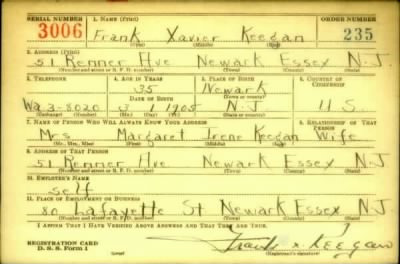 SERIAL NUMBER 1. NAME (Print) ORDER NUMBER
3006 Frank Xavier Keegan 235
(First) (Middle) (Last)
2. ADDRESS (Print)
51 Renner Ave Newark Essex N.J.
(Number and street or R. F. D. number) (Town) (County) (State)
3. TELEPHONE 4. AGE IN YEARS 5. PLACE OF BIRTH 6. COUNTRY OF CITIZENSHIP
35 Newark
DATE OF BIRTH (Town or county)
Wa 3-8020 3 1 1905 N.J U.S.
(Exchange) (Number) (Mo.) (Day) (Yr.) (State or country)
7. NAME OF PERSON WHO WILL ALWAYS KNOW YOUR ADDRESS 8. RELATIONSHIP OF THAT PERSON
Mrs Margaret Irene Keegan Wife
(Mr., Mrs., Miss) (First) (Middle) (Last)
9. ADDRESS OF THAT PERSON
51 Renner Ave Newark Essex N.J
(Number and street or R. F. D. number) (Town) (County) (State)
10. EMPLOYER'S NAME
Self
11. PLACE OF EMPLOYMENT OR BUSINESS
80 Lafayette St Newark Essex N.J
(Number and street or R. F. D. number) (Town) (County) (State)
I AFFIRM THAT I HAVE VERIFIED ABOVE ANSWERS AND THAT THEY ARE TRUE.
REGISTRATION CARD
D. S. S. Form 1 Frank X. Keegan
(Registrant's signature)